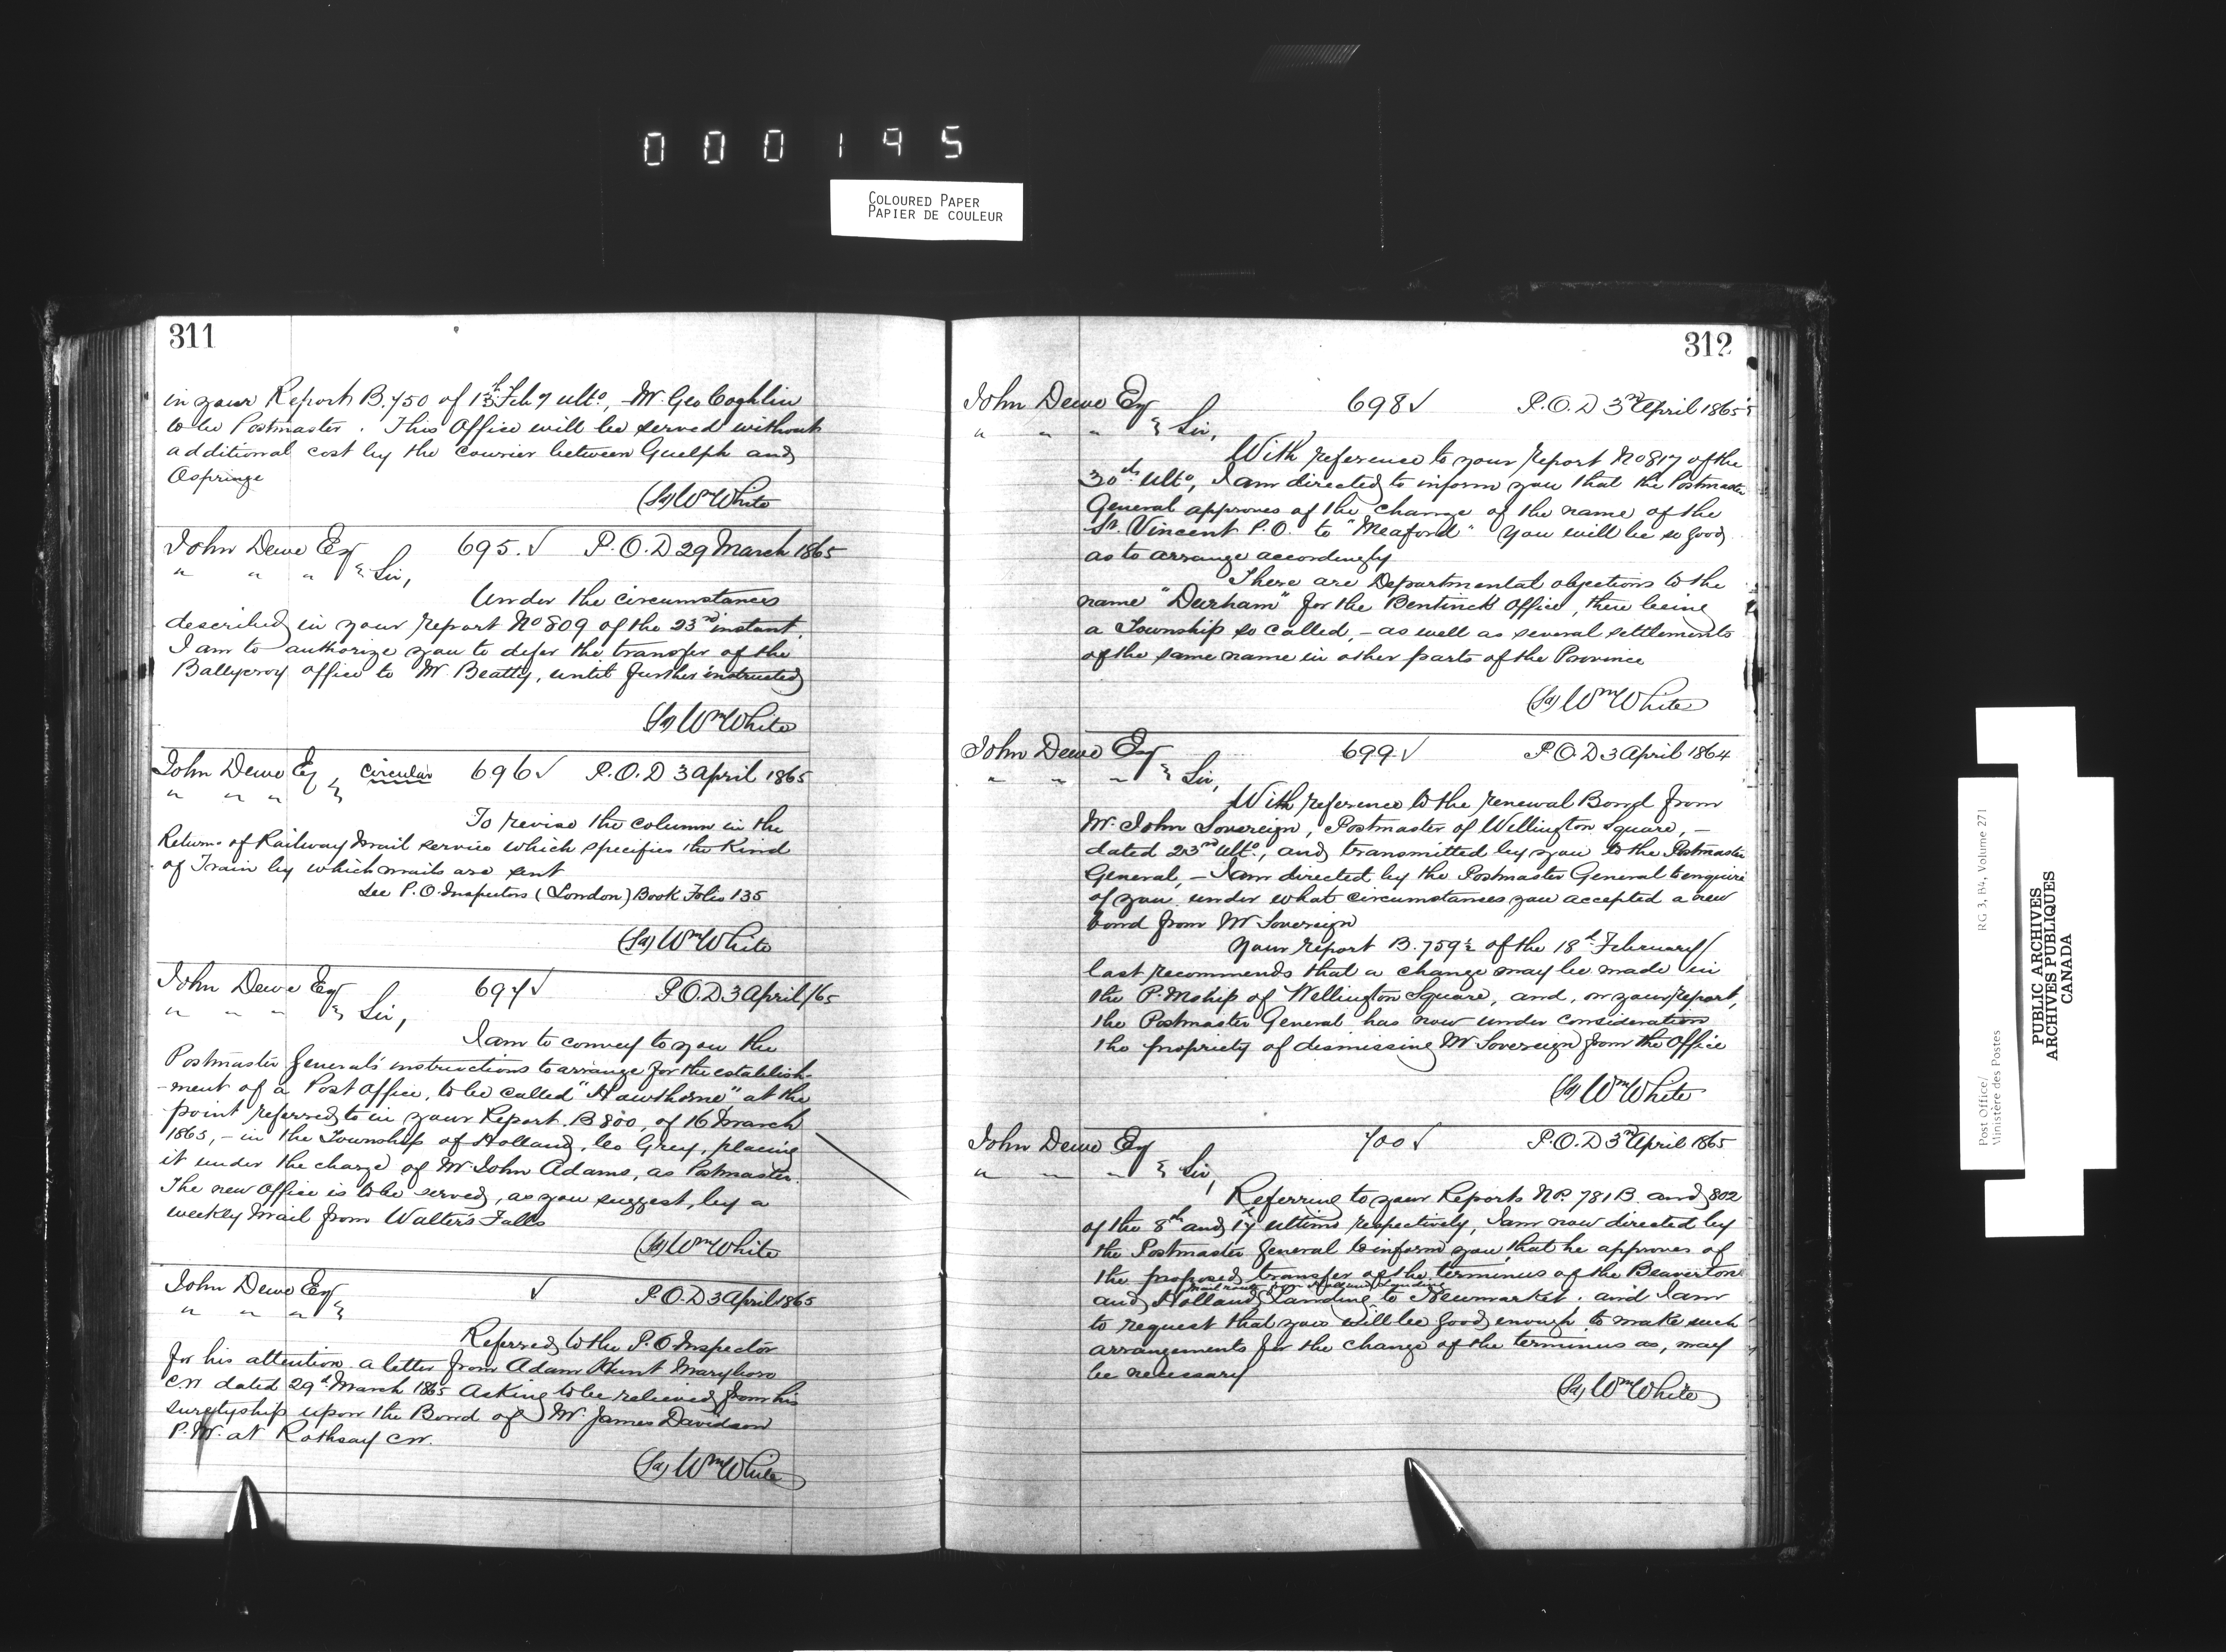 000195
COLOURED PAPER
PAPIER DE COULEUR
311
in your Report B.750 of 13th Feby ulto, - Mr. Geo Coghlin
to be Postmaster. This Office will be served without
additional cost by the Courier between Guelph and
Ospringe
(Sd) Wm White
John Dewe Esq 695. ✓ P.O.D 29 March 1865
" " " } Sir,
Under the circumstances
described in your report No 809 of the 23rd instant,
I am to authorize you to defer the transfer of the
Ballycroy office to Mr. Beatty, until further instructed
(Sd) Wm White
John Dewe Esq } Circular 696 ✓ P.O.D 3 April 1865
" " " }
To revise the column in the
Return of Railway Mail service which specifies the Kind
of Train by which mails are sent
See P.O. Inspectors (London) Book Folio 135
(Sd) Wm White
John Dewe Esq 697 ✓ P.O.D 3 April /65
" " " } Sir,
I am to convey to you the
Postmaster General's instructions to arrange for the establish-
-ment of a Post Office, to be called "Hawthorne" at the
point referred to in your Report. B 800, of 16 March
1865, - in the Township of Holland, Co Grey, placing
it under the charge of Mr. John Adams, as Postmaster.
The new Office is to be served, as you suggest, by a
weekly Mail from Walter's Falls
(Sd) Wm White
John Dewe Esq ✓ P.O.D 3 April 1865
" " " }
Referred to the P.O. Inspector
for his attention a letter from Adam Hunt Maryboro
C.W. dated 29th March 1865 Asking to be relieved from his
suretyship upon the Bond of Mr. James Davidson
P.M. at Rothsay C.W.
(Sd) Wm White
312
John Dewe Esq 698 ✓ P.O.D 3rd April 1865
" " " } Sir,
With reference to your report No 817 of the
30th ulto, I am directed to inform you that the Postmaster
General approves of the change of the name of the
St. Vincent P.O. to "Meaford" You will be so good
as to arrange accordingly
There are Departmental objections to the
name "Durham" for the Bentinck Office, there being
a Township so called, - as well as several settlements
of the same name in other parts of the Province
(Sd) Wm White
John Dewe Esq 699 ✓ P.O.D 3 April 1864
" " " } Sir,
With reference to the renewal Bond from
Mr. John Sovereign, Postmaster of Wellington Square, -
dated 23rd ulto, and transmitted by you to the Postmaster
General, - I am directed by the Postmaster General to enquire
of you under what circumstances you accepted a new
bond from Mr Sovereign
Your report B. 759½ of the 18th February
last recommends that a change may be made in
the P.Mship of Wellington Square, and, on your report,
the Postmaster General has now under consideration
the propriety of dismissing Mr Sovereign from the Office
(Sd) Wm White
John Dewe Esq 700 ✓ P.O.D 3rd April 1865
" " " } Sir,
Referring to your Reports No. 781 B. and 802
of the 8th and 17th ultimo respectively, I am now directed by
the Postmaster General to inform you, that he approves of
the proposed transfer of the terminus of the Beaverton
Mail route from Holland Landing
and Holland Landing to Newmarket. and I am
to request that you will be good enough to make such
arrangements for the change of the terminus as, may
be necessary
(Sd) Wm White
Post Office/
Ministère des Postes
RG 3, B4, Volume 271
PUBLIC ARCHIVES
ARCHIVES PUBLIQUES
CANADA